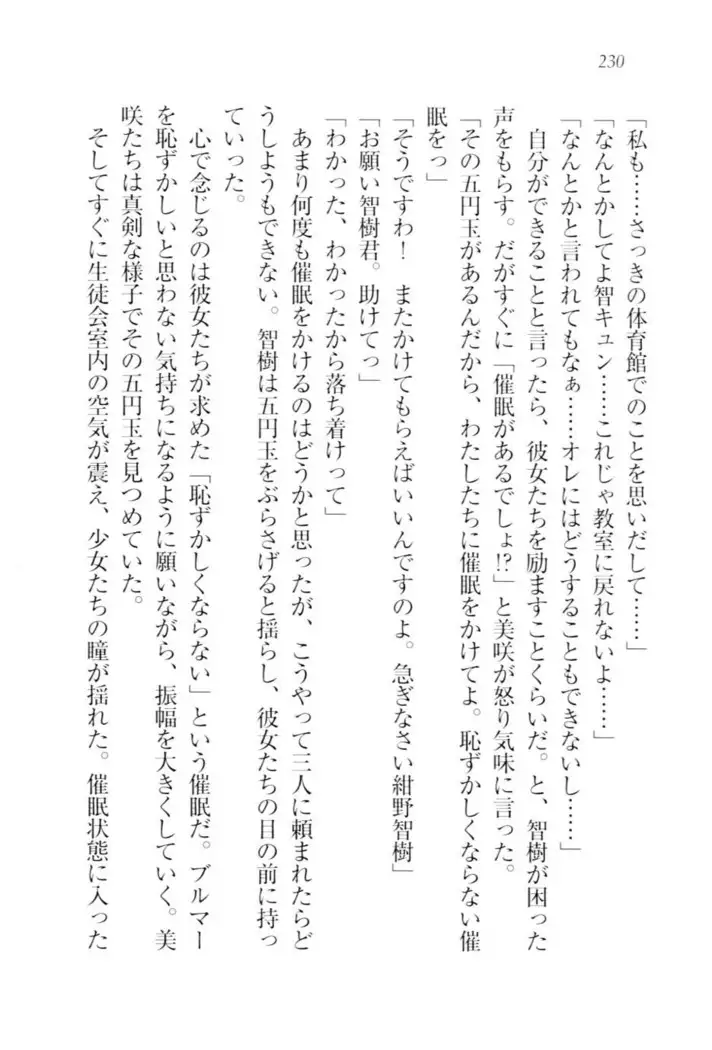 230
「私も……さっきの体育館でのことを思いだして……」
「なんとかしてよ智キュン……これじゃ教室に戻れないよ……」
「なんとかと言われてもなぁ……オレにはどうすることもできないし……」
　自分ができることと言ったら、彼女たちを励ますことくらいだ。と、智樹が困った
声をもらす。だがすぐに「催眠があるでしょ!?」と美咲が怒り気味に言った。
「その五円玉があるんだから、わたしたちに催眠をかけてよ。恥ずかしくならない催
眠をっ」
「そうですわ！　またかけてもらえばいいんですのよ。急ぎなさい紺野智樹」
「お願い智樹君。助けてっ」
「わかった、わかったから落ち着けって」
　あまり何度も催眠をかけるのはどうかと思ったが、こうやって三人に頼まれたらど
うしようもできない。智樹は五円玉をぶらさげると揺らし、彼女たちの目の前に持っ
ていった。
　心で念じるのは彼女たちが求めた「恥ずかしくならない」という催眠だ。ブルマー
を恥ずかしいと思わない気持ちになるように願いながら、振幅を大きくしていく。美
咲たちは真剣な様子でその五円玉を見つめていた。
　そしてすぐに生徒会室内の空気が震え、少女たちの瞳が揺れた。催眠状態に入った